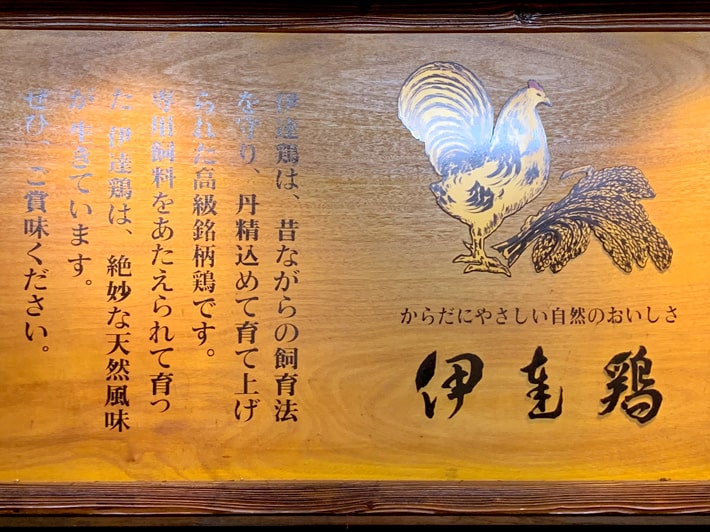 からだにやさしい自然のおいしさ
伊達鶏
伊達鶏は、昔ながらの飼育法
を守り、丹精込めて育て上げ
られた高級銘柄鶏です。
専用飼料をあたえられて育っ
た伊達鶏は、絶妙な天然風味
が生きています。
ぜひ、ご賞味ください。